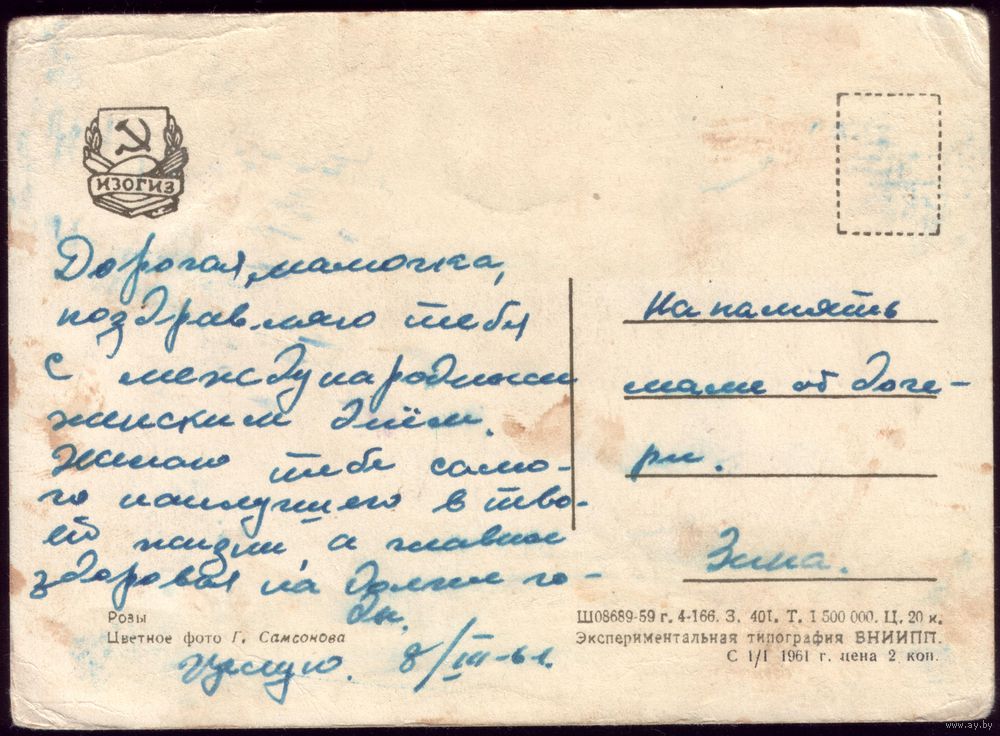 ИЗОГИЗ
Дорогая, мамочка,
поздравляю тебя
с международным
женским днём.
Желаю тебе само-
го наилучшего в тво-
ей жизни, а главное
здоровья на долгие го-
ды.
Целую. 8/III-61.
На память
маме от доче-
ри.
Зина.
Розы
Цветное фото Г. Самсонова
Ш08689-59 г. 4-166. З. 401. Т. 1 500 000. Ц. 20 к.
Экспериментальная типография ВНИИПП.
С 1/I 1961 г. цена 2 коп.
www.ay.by